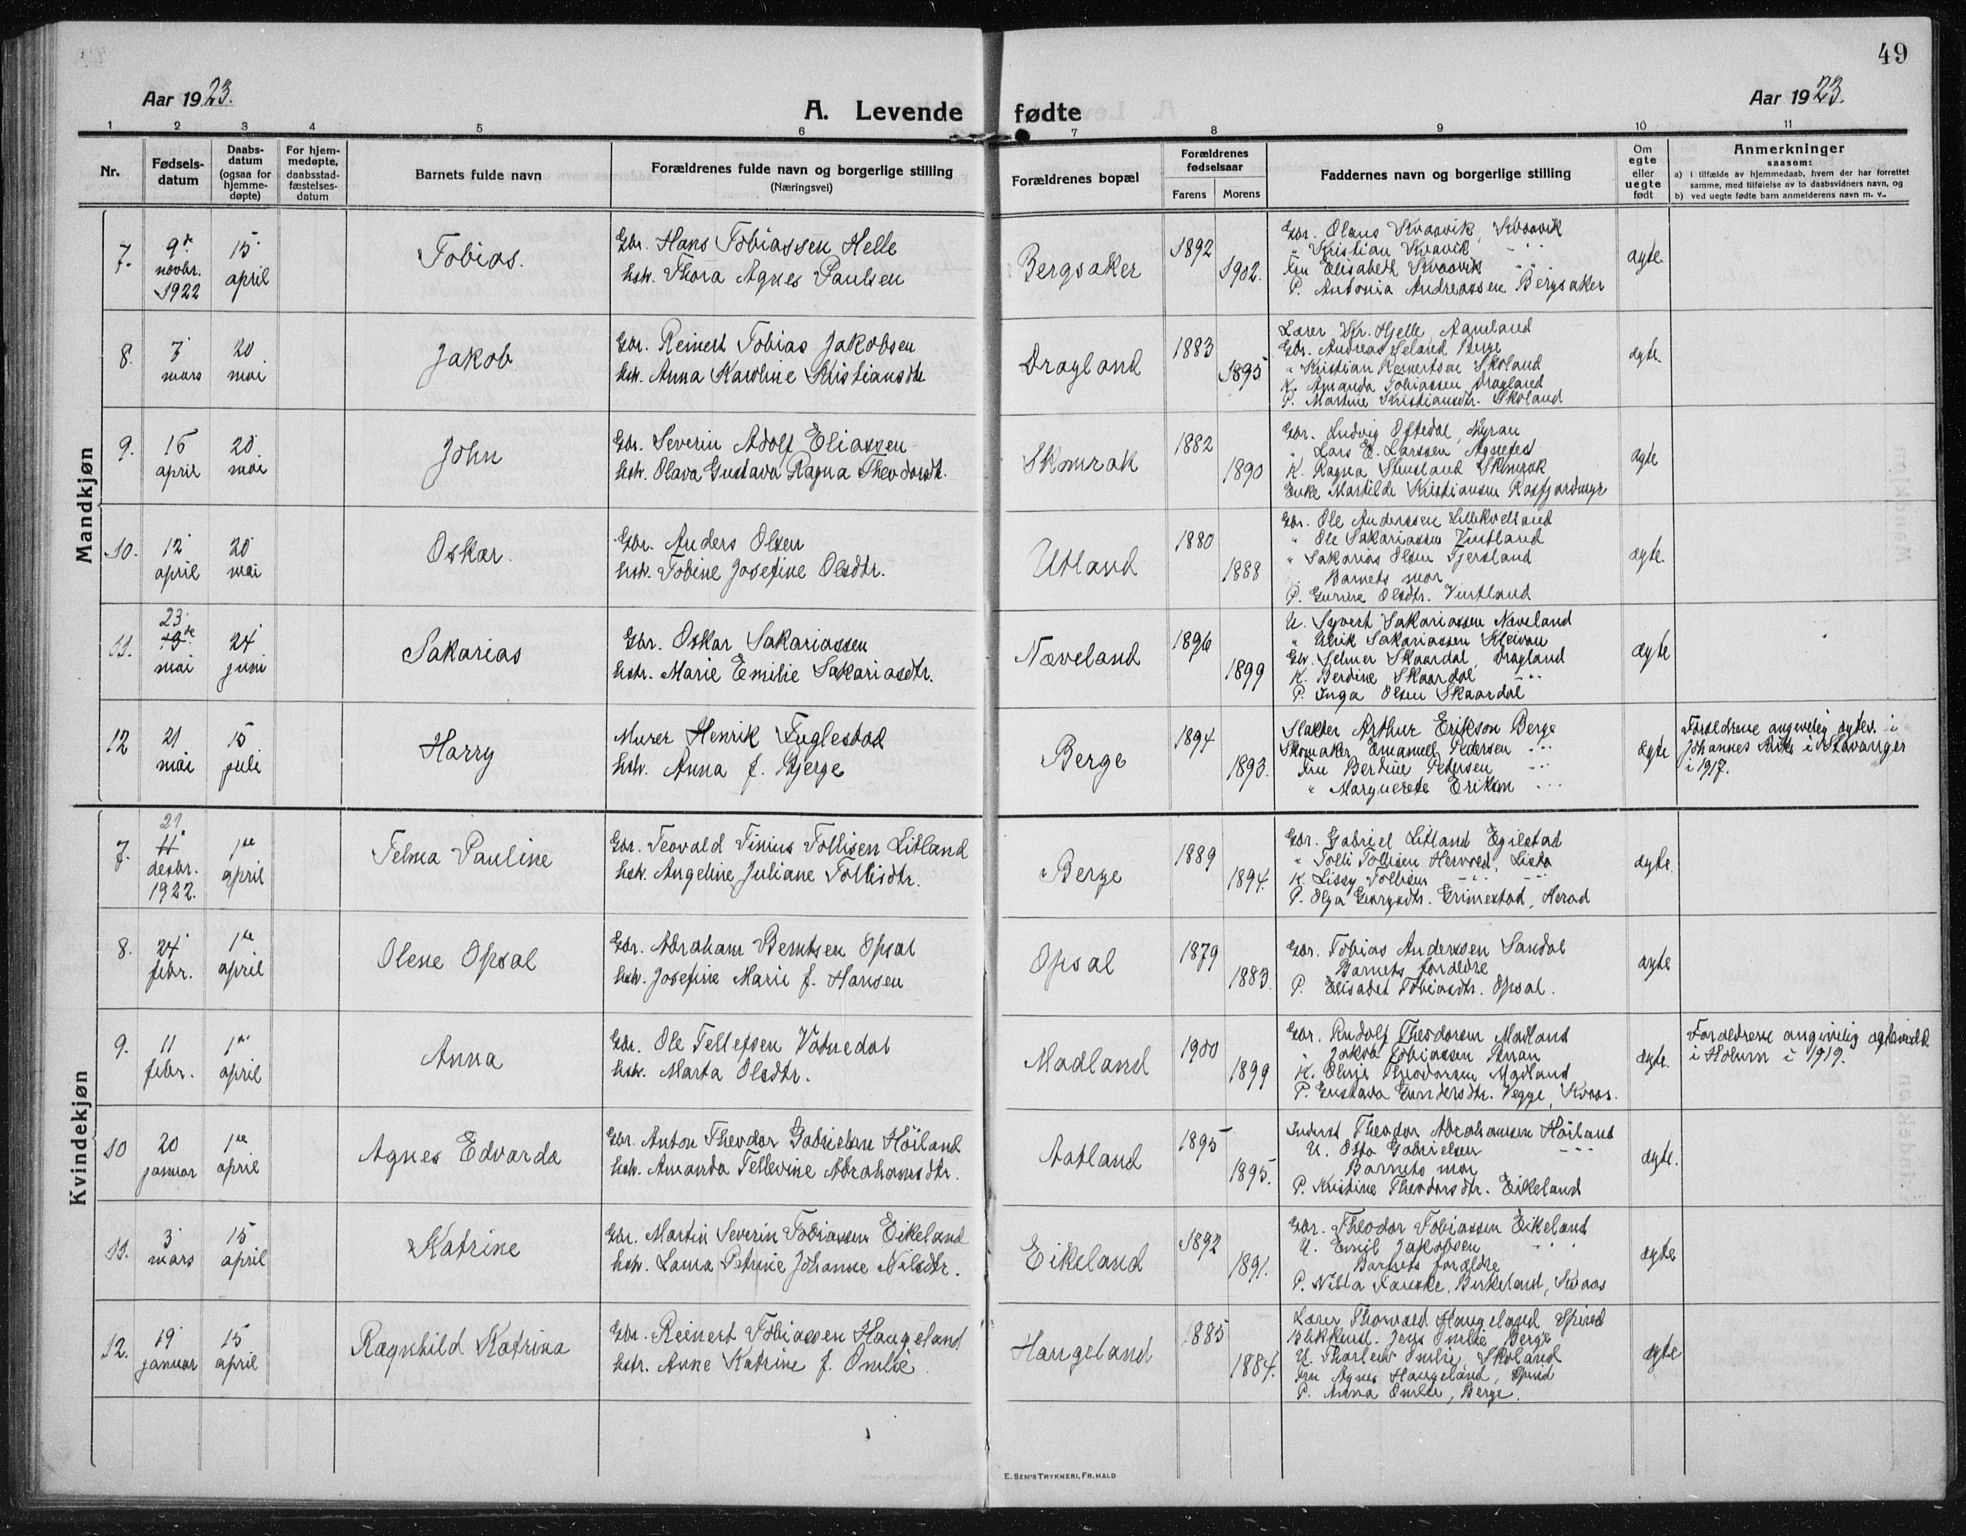 49
Aar 1923.
A. Levende fødte
Aar 1923.
1 2 3 4 5 6 7 8 9 10 11
Nr.
Fødsels-
datum
Daabs-
datum
(ogsaa for
hjemme-
døpte)
For hjem-
medøpte,
daabsstad-
fæstelses-
datum
Barnets fulde navn
Forældrenes fulde navn og borgerlige stilling
(Næringsvei)
Forældrenes bopæl
Forældrenes
fødselsaar
Farens Morens
Faddernes navn og borgerlige stilling
Om
egte
eller
uegte
født
Anmerkninger
saasom:
a) I tilfælde av hjemmedaab, hvem der har forrettet
samme, med tilføielse av to daabsvidners navn, og
b) ved uegte fødte barn anmelderens navn m. v..
Mandkjøn
7.
9de
novbr.
1922
15
april
Tobias.
Gbr. Hans Tobiassen Helle
hstr. Thora Agnes Paulsen
Bergsaker
1892
1902.
Gbr. Olaus Kvaavik, Kvaavik
" Kristian Kvavik
Fru Elisabeth Kvaavik
P. Antonia Andreassen Bergsaker
ægte
8.
7
mars
20
mai
Jakob
Gbr. Reinert Tobias Jakobsen
hstr. Anna Karoline Kristiansdtr
Dragland
1883
1895
Lærer Hjelle, Aamland
Gbr. Andreas Seland Berge
" Kristian Reinertsen Skoland
K. Amanda Tobiassen Dragland
P. Martine Kristiansdtr. Skoland
ægte.
9.
15
april
20
mai
John
Gbr. Severin Adolf Eliassen
hstr. Olava Gustava Ragna Theodorsdt.
Skomrak
1882
1890
Gbr. Ludvig Oftedal,
" Lars E. Larssen Agnefest
K. Ragna Stensland Skomrak
Enke Martilde Kristiansen Rosfjordmyr
ægte
10.
12
april
20
mai
Oskar.
Gbr. Anders Olsen
hstr. Tobine Josefine Olsdtr.
Utland
1880
1888
Gbr. Ole Anderssen Lillekvelland
" Ole Sakariassen Vintland
" Sakarias Olsen Fjersland
Barnets mor
P. Gurine Olsdtr. Vintland
ægte.
11.
23
mai
24
juni
Sakarias
Gbr. Oskar Sakariassen
hstr. Marie Emilie Sakariasdtr.
Næveland
1896
1899
U. Syvert Sakariassen Næveland
" Ulrik Sakariassen Kleivan
Gbr. Selmer Skaardal, Dragland
K. Berdine Skaardal
P. Inga Olsen Skaardal
ægte
12
21
mai
15
juli
Harry
Murer Henrik Fuglestad
hstr. Anna f. Bjerge
Berge
1894
1893.
Slakter Arthur Erikson Berge
Skomaker Emanuel Pedersen
Fru Berdine Petersen
" Marguerete Erikson
ægte
Forældrene angivelig ægtev. i
Johannes kirke i Stavanger
i 1917.
Kvindekjøn
7.
21
11
desbr.
1922.
1ste
april
Telma Pauline
Gbr. Teovald Tinius Tollisen Litland
hstr. Angeline Juliane Tollisdtr.
Berge
1889
1894.
Gbr. Gabriel Litland Egilstad
" Tolli Tollisen Hervod, Lista
K. Lissy Tollisen
P. Olga Georgsdtr. Grimestad, Herad
ægte.
8.
24
febr.
1ste
april
Olene Opsal
Gbr. Abraham Berntsen Opsal
hstr. Josefine Marie f. Hansen
Opsal
1879
1883.
Gbr. Tobias Anderssen Sandal
Barnets forældre
P. Elisabet Tobiasdtr. Opsal.
ægte
9.
11
febr.
1ste
april
Anna
Gbr. Ole Tellefsen Vatnedal
hstr. Marta Olsdtr.
Madland
1900
1899
Gbr. Rudolf Theodorsen Madland
" Jakob Tobiassen Aman
K. Olvie Theodorsen Madland
P. Gustava Gundersdtr. Vegge, Kvaas.
ægte.
Forældrene angivelig ægteviedt
i Holum i 1919.
10
20
januar
1ste
april
Agnes Edvarda
Gbr. Anton Theodor Gabrielsen Höiland
hstr. Amanda Tellevine Abrahamsdtr.
Aatland
1895
1895.
Inderst Theodor Abrahamsen Höiland
U. Otto Gabrielsen
Barnets mor
P. Kristine Theodorsdtr. Eikeland
ægte.
11.
3
mars
15
april
Katrine
Gbr. Martin Severin Tobiassen Eikeland
hstr. Lama Petrine Johanne Nilsdtr.
Eikeland
1892
1891.
Gbr. Theodor Tobiassen Eikeland
U. Emil Jakobsen
Barnets forældre
P. Nilla Birkeland, Kvaas
ægte
12.
19
januar
15
april
Ragnhild Katrina
Gbr. Reinert Tobiassen Haugeland
hstr. Anne Katrine f. Omlie.
Haugeland
1885
1884.
Lærer Thorvald Haugeland Spind
Blikksl. Jens Omlie Berge
U. Tharlem Omlie, Skoland
Fru Agnes Haugeland, Spind
P. Anna Omlie, Berge.
ægte
E. SEM'S TRYKKERI, FR. HALD